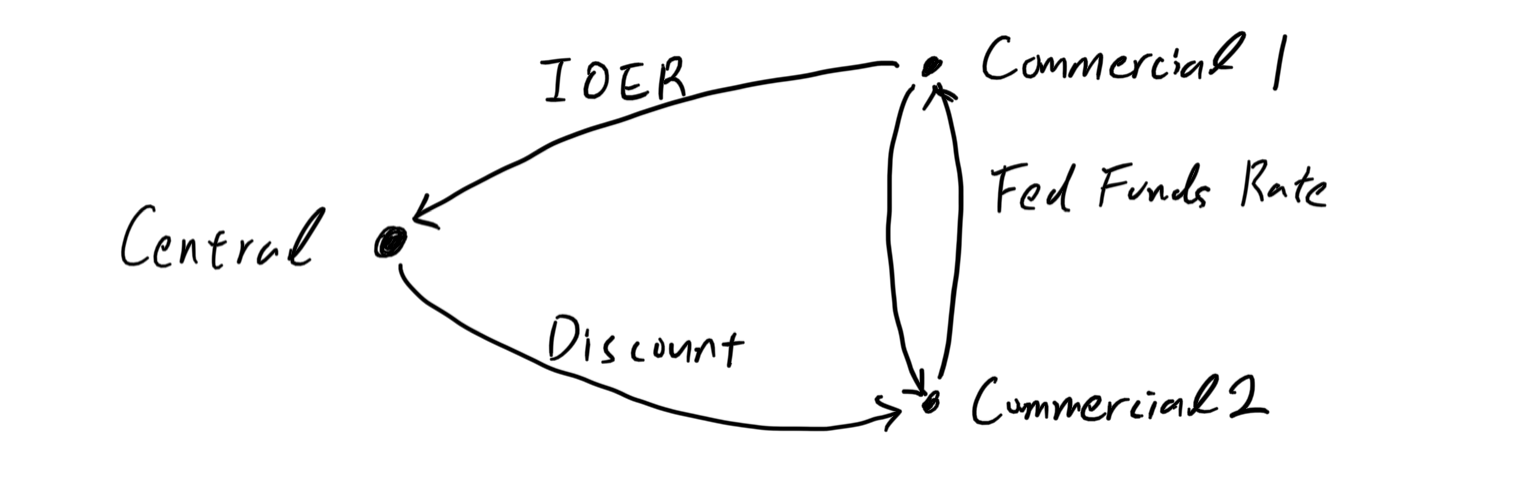 IOER
Commercial 1
Fed Funds Rate
Central
Discount
Commercial 2